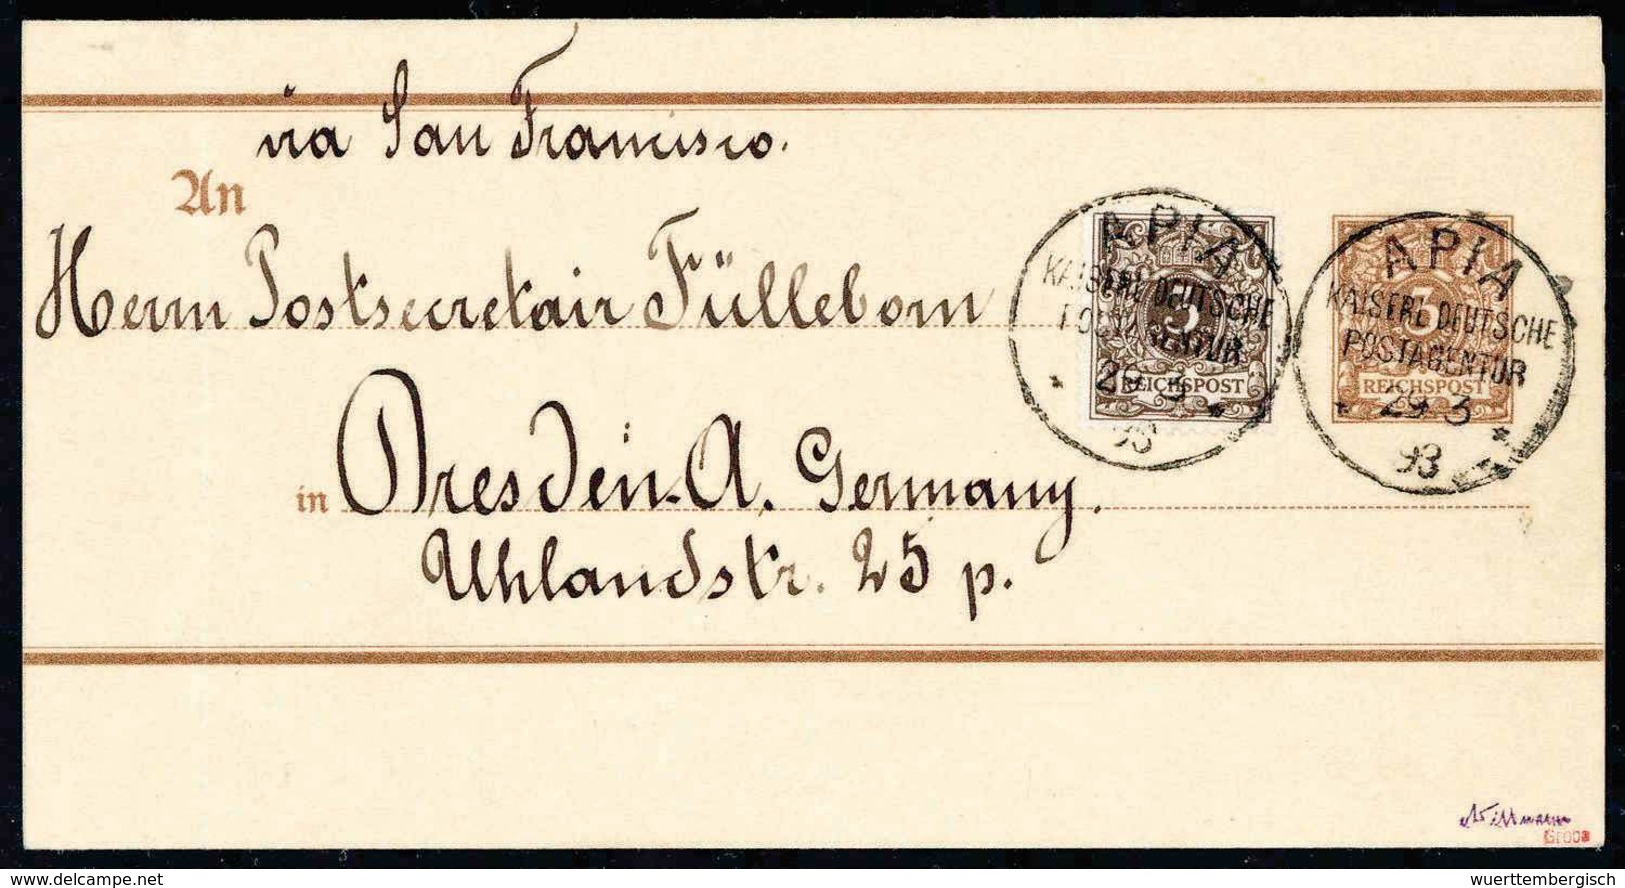 via San Francisco.
An
Herrn Postsecretair Fülleborn
in Dresden-A. Germany.
Uhlandstr. 25 p.
APIA
KAISERL DEUTSCHE
POSTAGENTUR
3
REICHSPOST
29 3
93
APIA
KAISERL DEUTSCHE
POSTAGENTUR
3
REICHSPOST
29 3
93
delcampe.net
wuerttembergisch